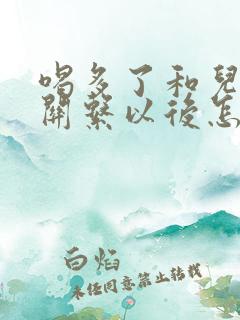 喝多了和兒
關繫以後怎
白焰
未任同意禁止转载